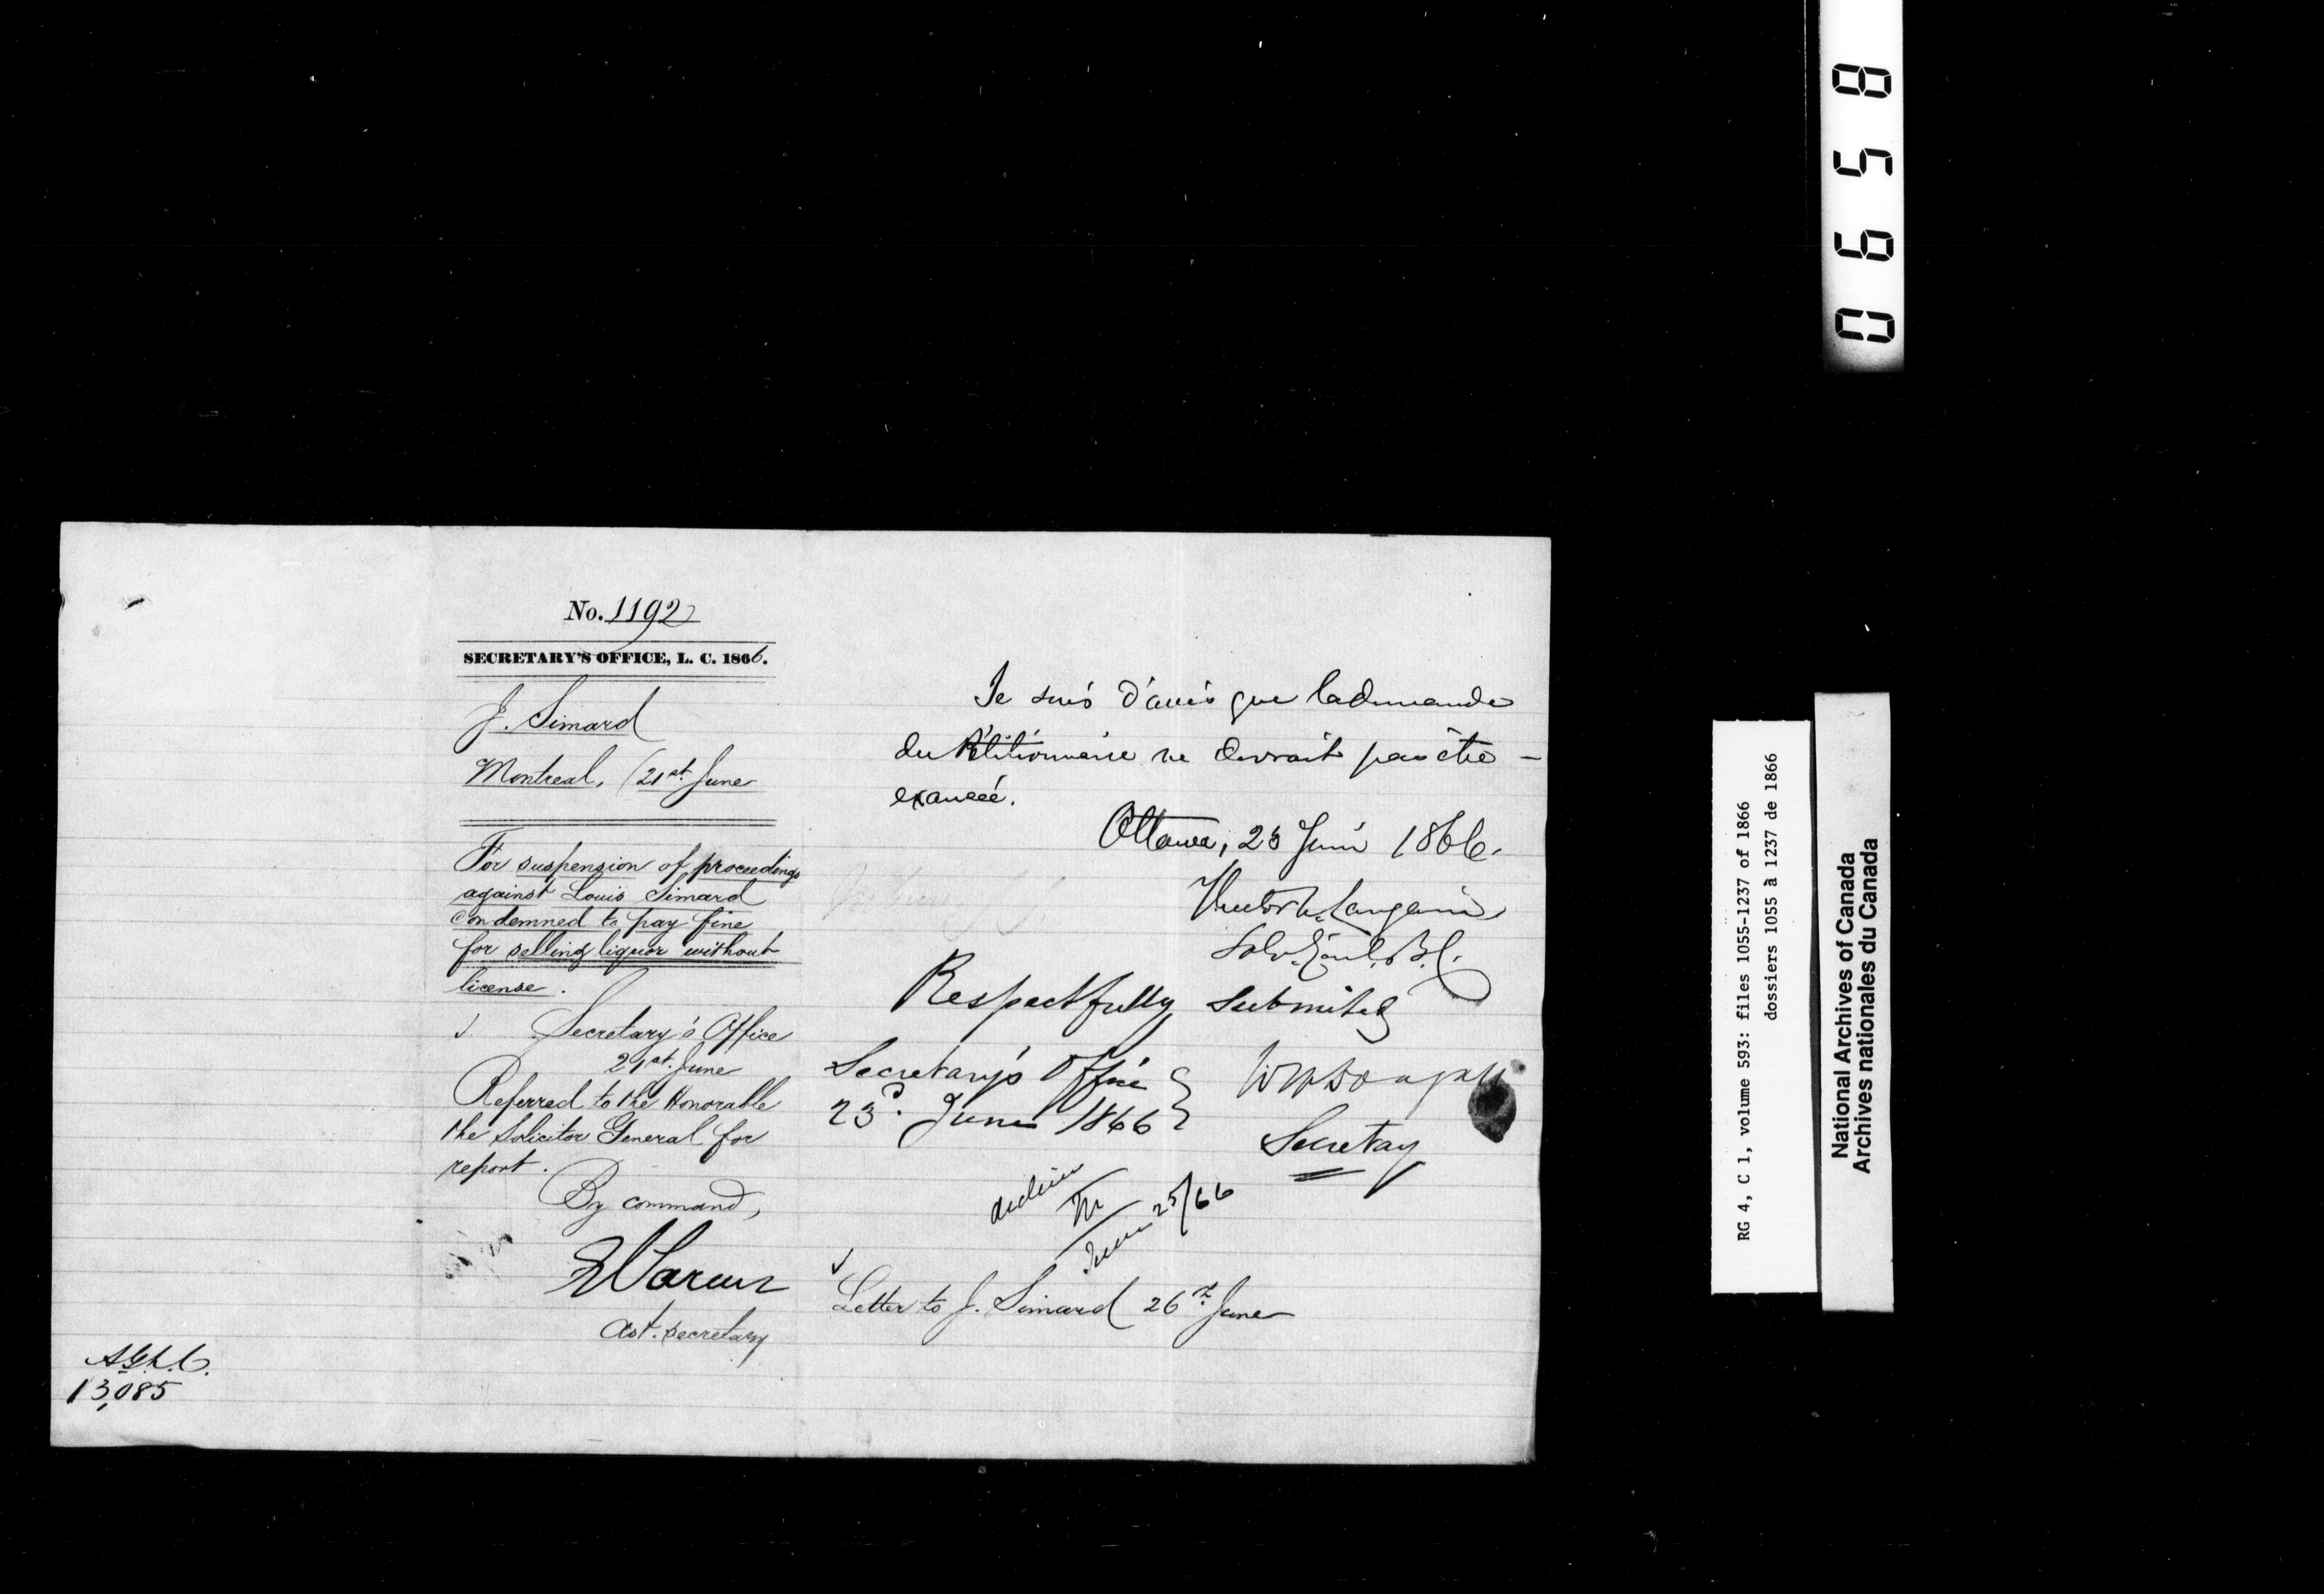 No. 1192
SECRETARY'S OFFICE, L. C. 1866.
J. Simard
Montreal, 21st June
For suspension of proceedings
against Louis Simard
condemned to pay fine
for selling liquor without
license.
Secretary's Office
21st June
Referred to the Honorable
the Solicitor General for
report.
By command,
Ast. Secretary
A.G.L.C.
13,085
Je suis d'avis que la demande
du Pétitionnaire ne devrait pas être -
exaucée.
Ottawa, 23 Juin 1866.
Hector L. Langevin
Sol. Génl. B.C.
Respectfully submitted
Secretary's Office
23d. June 1866
WMcDougall
Secretary
June 25/66
Letter to J. Simard 26th June
0658
RG 4, C 1, volume 593: files 1055-1237 of 1866
dossiers 1055 à 1237 de 1866
National Archives of Canada
Archives nationales du Canada